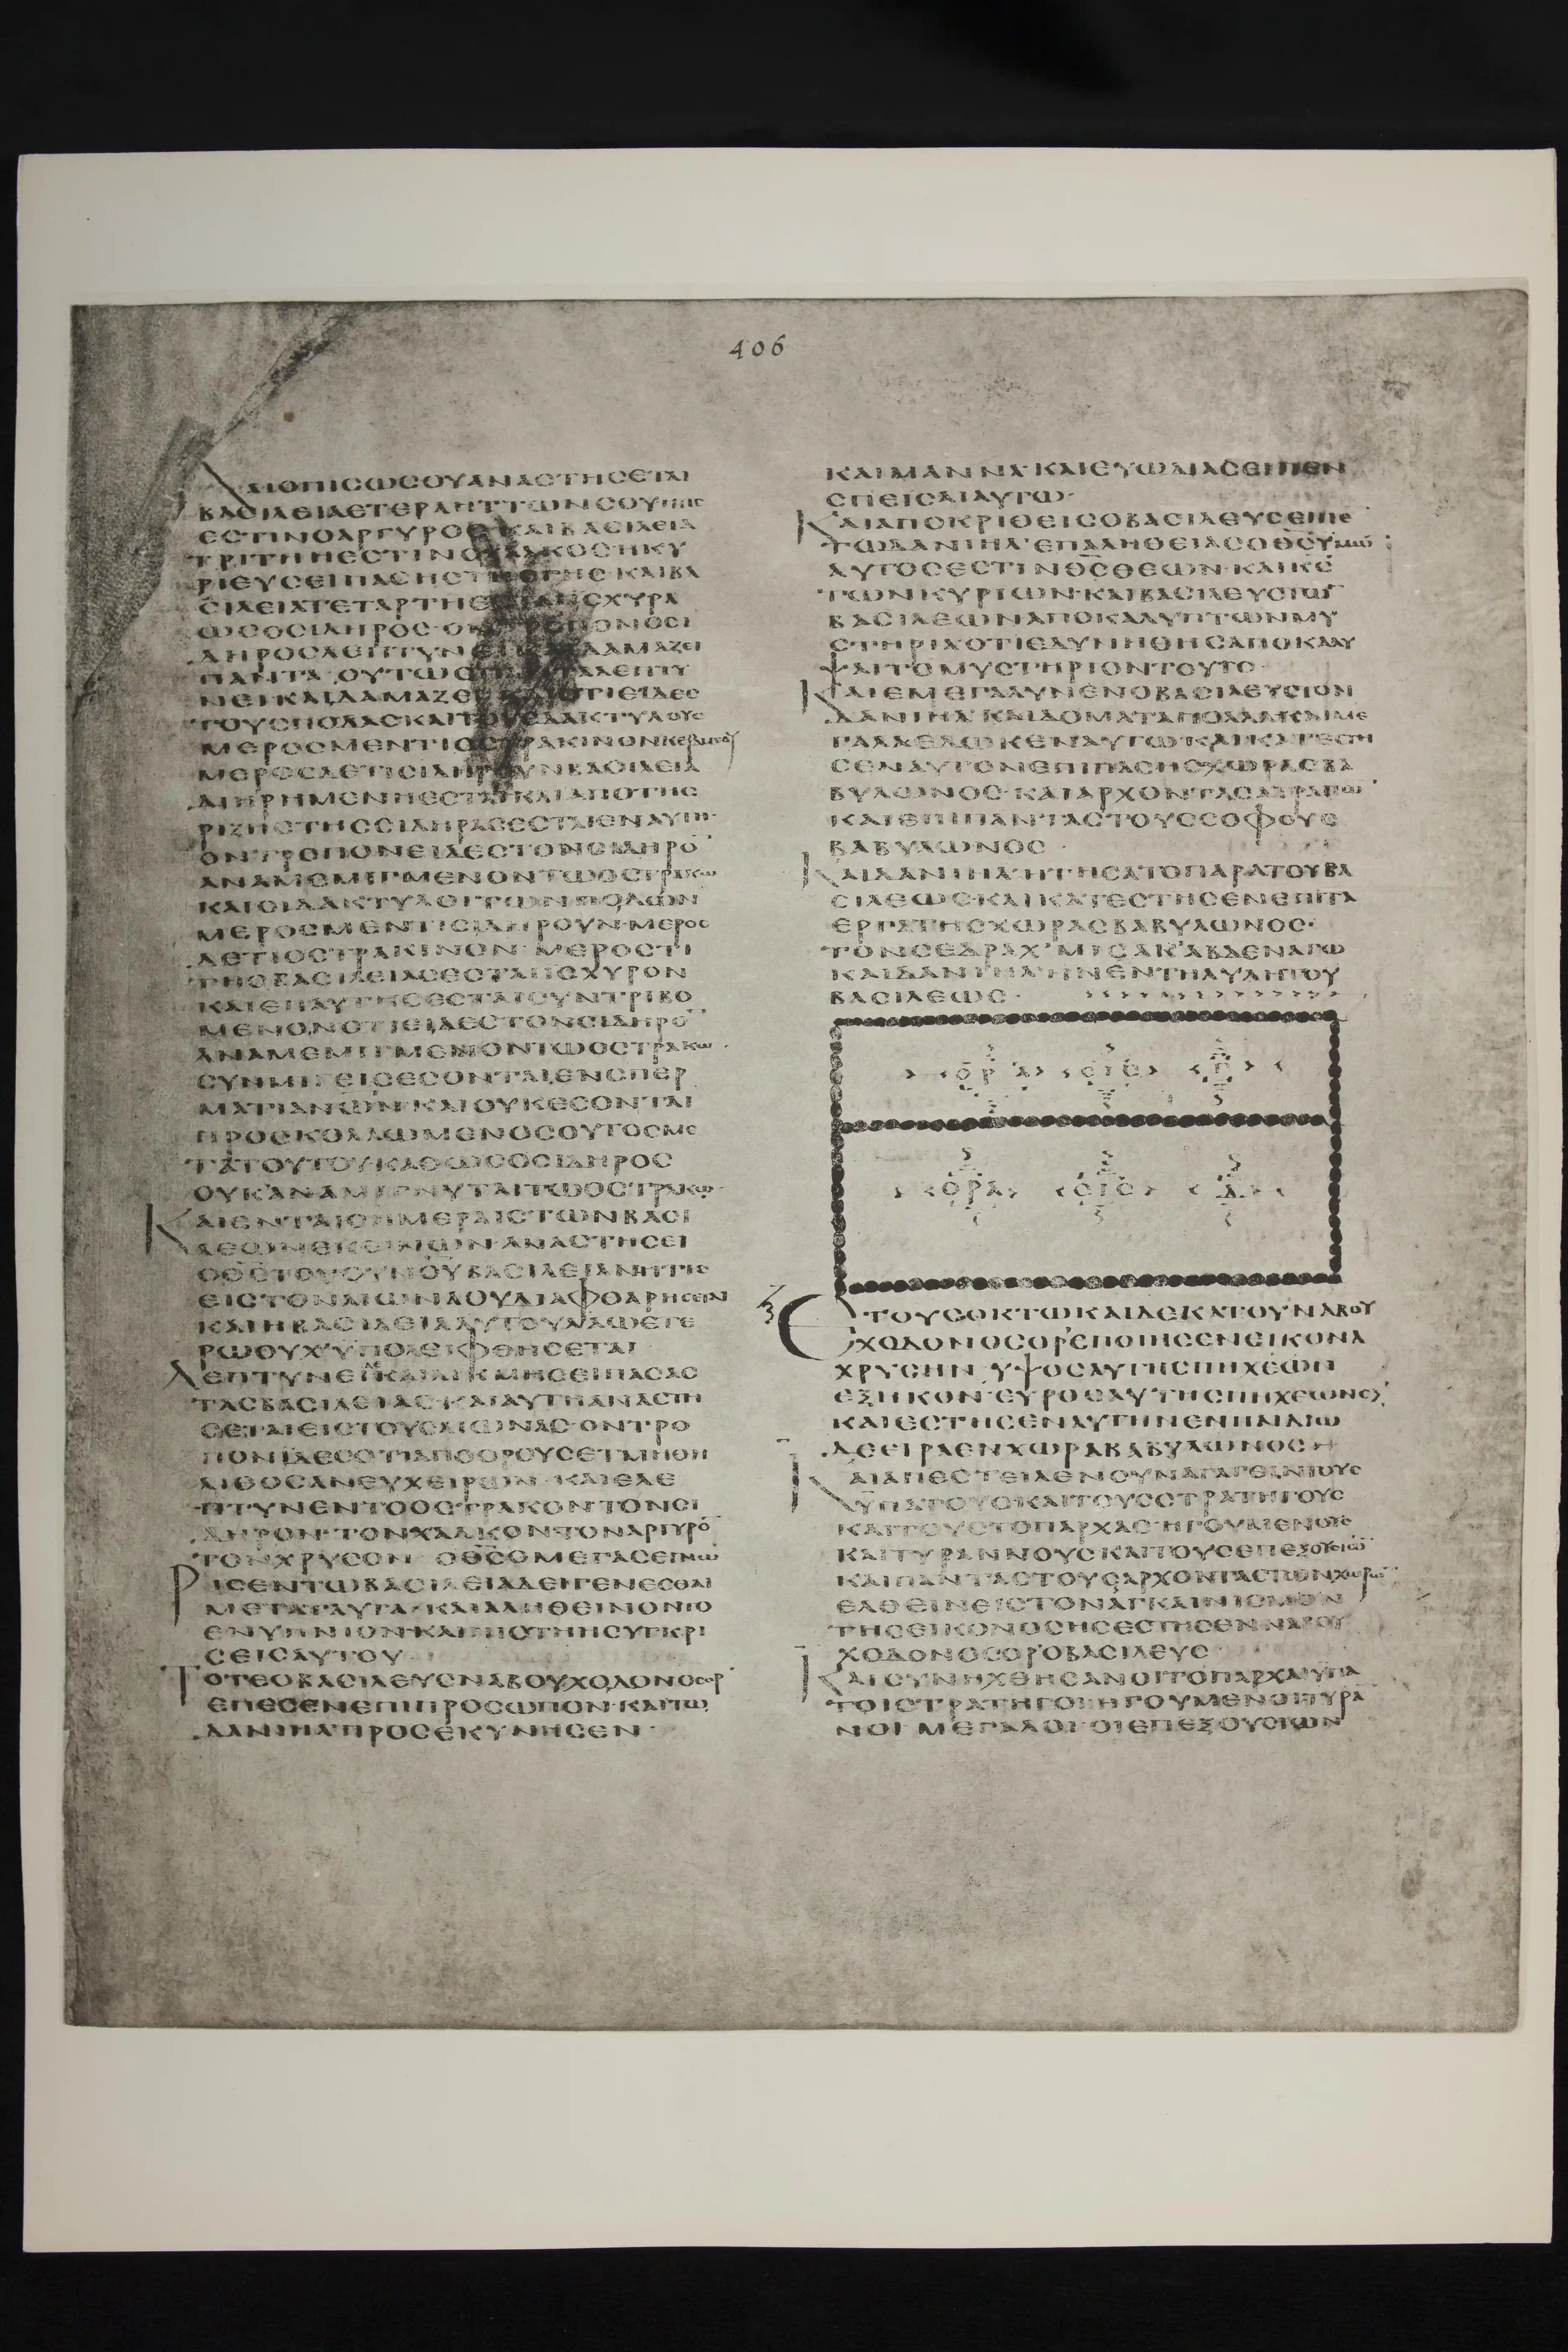 406
ΚΑΙΟΠΙCΩCΟΥΑΝΑCΤΗCΕΤΑΙ
ΒΑCΙΛΕΙΑΕΤΕΡΑΗΤΤΩΝCΟΥ
ΕCΤΙΝΟΑΡΓΥΡΟC ΚΑΙΒΑCΙΛΕΙΑ
ΤΡΙΤΗΗΕCΤΙΝΟΧΑΛΚΟCΗΚΥ
ΡΙΕΥCΕΙΠΑCΗCΤΗCΓΗC·ΚΑΙΒΑ
CΙΛΕΙΑΤΕΤΑΡΤΗ
ΩCΟCΙΔΗΡΟC·ΟΝ
ΔΗΡΟCΛΕΠΤΥΝΕΙ ΔΑΜΑΖΕΙ
ΠΑΝΤΑ·ΟΥΤΩC ΛΕΠΤΥ
ΝΕΙΚΑΙΔΑΜΑΖΕΙ ΟΤΙΕΙΔΕC
ΤΟΥCΠΟΔΑCΚΑΙΤΟΥCΔΑΚΤΥΛΟΥC
ΜΕΡΟCΜΕΝΤΙΟCΤΡΑΚΙΝΟΝ
ΜΕΡΟCΔΕΤΙCΙΔΗΡΟΥΝΒΑCΙΛΕΙΑ
ΔΙΗΡΗΜΕΝΗΕCΤΑΙΚΑΙΑΠΟΤΗC
ΡΙΖΗCΤΗCCΙΔΗΡΑCΕCΤΑΙΕΝΑΥΤΗ·
ΟΝΤΡΟΠΟΝΕΙΔΕCΤΟΝCΙΔΗΡΟ̅
ΑΝΑΜΕΜΙΓΜΕΝΟΝΤΩΟCΤΡΑΚΩ
ΚΑΙΟΙΔΑΚΤΥΛΟΙΤΩΝΠΟΔΩΝ
ΜΕΡΟCΜΕΝΤΙCΙΔΗΡΟΥΝ·ΜΕΡΟC
ΔΕΤΙΟCΤΡΑΚΙΝΟΝ·ΜΕΡΟCΤΙ
ΤΗCΒΑCΙΛΕΙΑCΕCΤΑΙΙCΧΥΡΟΝ
ΚΑΙΕΠΑΥΤΗCΕCΤΑΙCΥΝΤΡΙΒΟ
ΜΕΝΟΝΟΤΙΕΙΔΕCΤΟΝCΙΔΗΡΟ̅
ΑΝΑΜΕΜΙΓΜΕΝΟΝΤΩΟCΤΡΑΚΩ·
CΥΝΜΙΓΕΙCΕCΟΝΤΑΙΕΝCΠΕΡ
ΜΑΤΙΑΝΩΝ·ΚΑΙΟΥΚΕCΟΝΤΑΙ
ΠΡΟCΚΟΛΛΩΜΕΝΟCΟΥΤΟCΜΕ
ΤΑΤΟΥΤΟΥΚΑΘΩCΟCΙΔΗΡΟC
ΟΥΚΑΝΑΜΙΓΝΥΤΑΙΤΩΟCΤΡΑΚΩ·
ΚΑΙΕΝΤΑΙCΗΜΕΡΑΙCΤΩΝΒΑCΙ
ΛΕΩΝΕΚΕΙΝΩΝ·ΑΝΑCΤΗCΕΙ
ΟΘ̅C̅ΤΟΥΟΥΝΟΥΒΑCΙΛΕΙΑΝΗΤΙC
ΕΙCΤΟΝΑΙΩΝΑΟΥΔΙΑΦΘΑΡΗCΕΤΑΙ
ΚΑΙΗΒΑCΙΛΕΙΑΑΥΤΟΥΛΑΩΕΤΕ
ΡΩΟΥΧΥΠΟΛΕΙΦΘΗCΕΤΑΙ
ΛΕΠΤΥΝΕΙΚΑΙΛΙΚΜΗCΕΙΠΑCΑC
ΤΑCΒΑCΙΛΕΙΑC·ΚΑΙΑΥΤΗΑΝΑCΤΗ
CΕΤΑΙΕΙCΤΟΥCΑΙΩΝΑC·ΟΝΤΡΟ
ΠΟΝΙΔΕCΟΤΙΑΠΟΟΡΟΥCΕΤΜΗΘΗ
ΛΙΘΟCΑΝΕΥΧΕΙΡΩΝ·ΚΑΙΕΛΕ
ΠΤΥΝΕΝΤΟΟCΤΡΑΚΟΝΤΟΝCΙ
ΔΗΡΟΝ·ΤΟΝΧΑΛΚΟΝΤΟΝΑΡΓΥΡΟ̅
ΤΟΝΧΡΥCΟΝ·ΟΘ̅C̅ΟΜΕΓΑCΕΓΝΩ
ΡΙCΕΝΤΩΒΑCΙΛΕΙΑΔΕΙΓΕΝΕCΘΑΙ
ΜΕΤΑΤΑΥΤΑ·ΚΑΙΑΛΗΘΕΙΝΟΝΤΟ
ΕΝΥΠΝΙΟΝ·ΚΑΙΠΙCΤΗΗCΥΓΚΡΙ
CΕΙCΑΥΤΟΥ
ΤΟΤΕΟΒΑCΙΛΕΥCΝΑΒΟΥΧΟΔΟΝΟCΟΡ
ΕΠΕCΕΝΕΠΙΠΡΟCΩΠΟΝ·ΚΑΙΤΩ
ΔΑΝΙΗΛΠΡΟCΕΚΥΝΗCΕΝ·
ΚΑΙΜΑΝΝΑ·ΚΑΙΕΥΩΔΙΑCΕΙΠΕΝ
CΠΕΙCΑΙΑΥΤΩ·
ΚΑΙΑΠΟΚΡΙΘΕΙCΟΒΑCΙΛΕΥCΕΙΠΕ
ΤΩΔΑΝΙΗΛ·ΕΠΑΛΗΘΕΙΑCΟΘ̅C̅ΥΜΩ̅
ΑΥΤΟCΕCΤΙΝΘ̅C̅ΘΕΩΝ·ΚΑΙΚ̅C̅
ΤΩΝΚΥΡΙΩΝ·ΚΑΙΒΑCΙΛΕΥCΤΩ̅
ΒΑCΙΛΕΩΝΑΠΟΚΑΛΥΠΤΩΝΜΥ
CΤΗΡΙΑΟΤΙΕΔΥΝΗΘΗCΑΠΟΚΑΛΥ
ΨΑΙΤΟΜΥCΤΗΡΙΟΝΤΟΥΤΟ·
ΚΑΙΕΜΕΓΑΛΥΝΕΝΟΒΑCΙΛΕΥCΤΟΝ
ΔΑΝΙΗΛ·ΚΑΙΔΟΜΑΤΑΠΟΛΛΑΚΑΙΜΕ
ΓΑΛΑΕΔΩΚΕΝΑΥΤΩΚΑΙΚΑΤΕCΤΗ
CΕΝΑΥΤΟΝΕΠΙΠΑCΗCΧΩΡΑCΒΑ
ΒΥΛΩΝΟC·ΚΑΙΑΡΧΟΝΤΑCΑΤΡΑΠΩ̅
ΚΑΙΕΠΙΠΑΝΤΑCΤΟΥCCΟΦΟΥC
ΒΑΒΥΛΩΝΟC·
ΚΑΙΔΑΝΙΗΛΗΤΗCΑΤΟΠΑΡΑΤΟΥΒΑ
CΙΛΕΩC·ΚΑΙΚΑΤΕCΤΗCΕΝΕΠΙΤΑ
ΕΡΓΑΤΗCΧΩΡΑCΒΑΒΥΛΩΝΟC·
ΤΟΝCΕΔΡΑΧ'ΜΙCΑΚ'ΑΒΔΕΝΑΓΩ
ΚΑΙΔΑΝΙΗΛΗΝΕΝΤΗΑΥΛΗΤΟΥ
ΒΑCΙΛΕΩC·
ΟΡΑ CΙC Γ
ΟΡΑ CΙC Δ
ΕΤΟΥCΟΚΤΩΚΑΙΔΕΚΑΤΟΥΝΑΒΟΥ
ΧΟΔΟΝΟCΟΡΕΠΟΙΗCΕΝΕΙΚΟΝΑ
ΧΡΥCΗΝ·ΥΨΟCΑΥΤΗCΠΗΧΕΩΝ
ΕΞΗΚΟΝ·ΕΥΡΟCΑΥΤΗCΠΗΧΕΩΝ
ΚΑΙΕCΤΗCΕΝΑΥΤΗΝΕΝΠΑΙΔΙΩ
ΔΕΕΙΡΑΕΝΧΩΡΑΒΑΒΥΛΩΝΟC
ΚΑΙΑΠΕCΤΕΙΛΕΝCΥΝΑΓΑΓΕΙΝΤΟΥC
ΥΠΑΤΟΥCΚΑΙΤΟΥCCΤΡΑΤΗΓΟΥC
ΚΑΙΤΟΥCΤΟΠΑΡΧΑC·ΗΓΟΥΜΕΝΟΥC
ΚΑΙΤΥΡΑΝΝΟΥCΚΑΙΤΟΥCΕΠΕΞΟΥCΙΩ̅
ΚΑΙΠΑΝΤΑCΤΟΥCΑΡΧΟΝΤΑCΤΩΝΧΩΡΩ̅
ΕΛΘΕΙΝΕΙCΤΟΝΑΓΚΑΙΝΙCΜΟΝ
ΤΗCΕΙΚΟΝΟCΗCΕCΤΗCΕΝΝΑΒΟΥ
ΧΟΔΟΝΟCΟΡΟΒΑCΙΛΕΥC·
ΚΑΙCΥΝΗΧΘΗCΑΝΟΙΤΟΠΑΡΧΑΙΥΠΑ
ΤΟΙCΤΡΑΤΗΓΟΙΗΓΟΥΜΕΝΟΙΤΥΡΑ
ΝΟΙ·ΜΕΓΑΛΟΙ·ΟΙΕΠΕΞΟΥCΙΩΝ